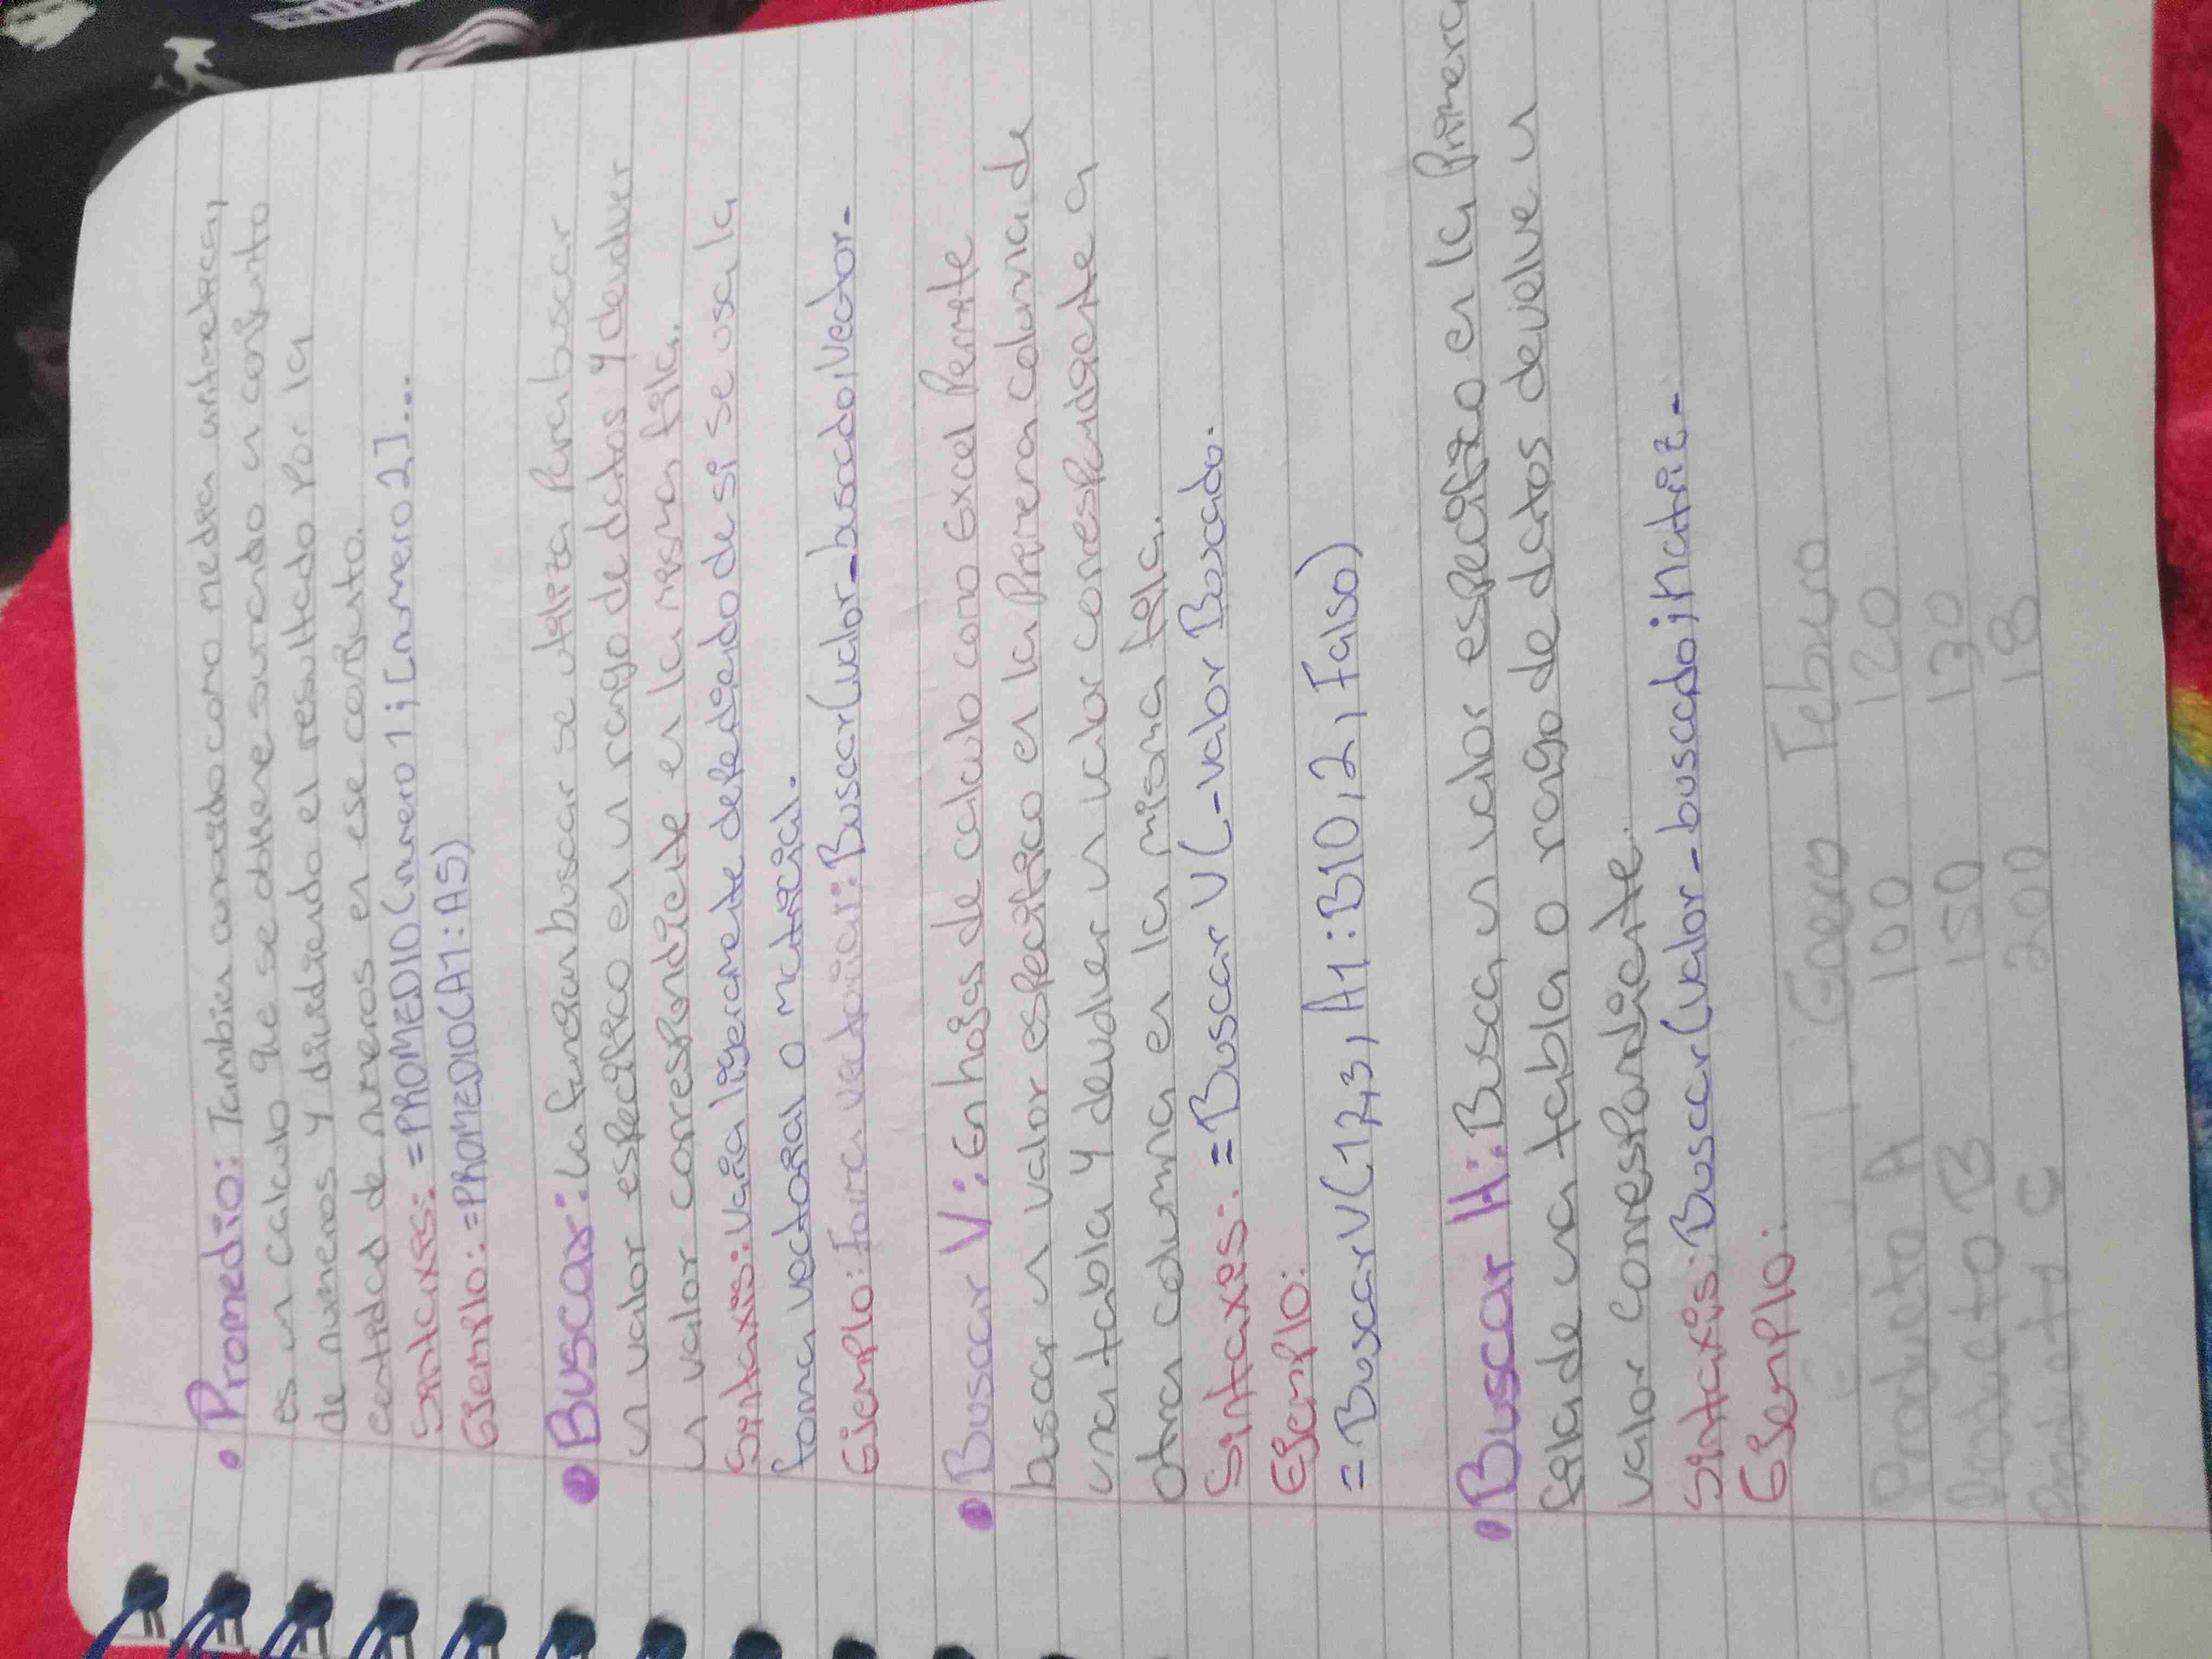 • Promedio: Tambien conocido como media aritmetica,
es un calculo que se obtiene sumando un conjunto
de numeros y dividiendo el resultado por la
cantidad de numeros en ese conjunto.
Sintaxis: =PROMEDIO(numero1;[numero2]...
Ejemplo: =PROMEDIO(A1:A5)
• Buscar: La funcion buscar se utiliza para buscar
un valor especifico en un rango de datos y devolver
un valor correspondiente en la misma fila.
Sintaxis: Varia ligeramente dependiendo de si se usa la
forma vectorial o matricial.
Ejemplo: Forma vectorial: Buscar(valor_buscado, Vector-
• Buscar V: En hojas de calculo como Excel Permite
buscar un valor especifico en la Primera columna de
una tabla y devolver un valor correspondiente a
otra columna en la misma fila.
Sintaxis: =Buscar V(-valor Buscado.
Ejemplo:
=BuscarV(123, A1:B10,2, Falso)
• Buscar H: Busca un valor especifico en la Primera
fila de una tabla o rango de datos devuelve un
valor correspondiente.
Sintaxis: Buscar(valor-buscado; Matriz-
Ejemplo:
Enero Febrero
Producto A 100 120
Producto B 150 130
Producto C 200 18